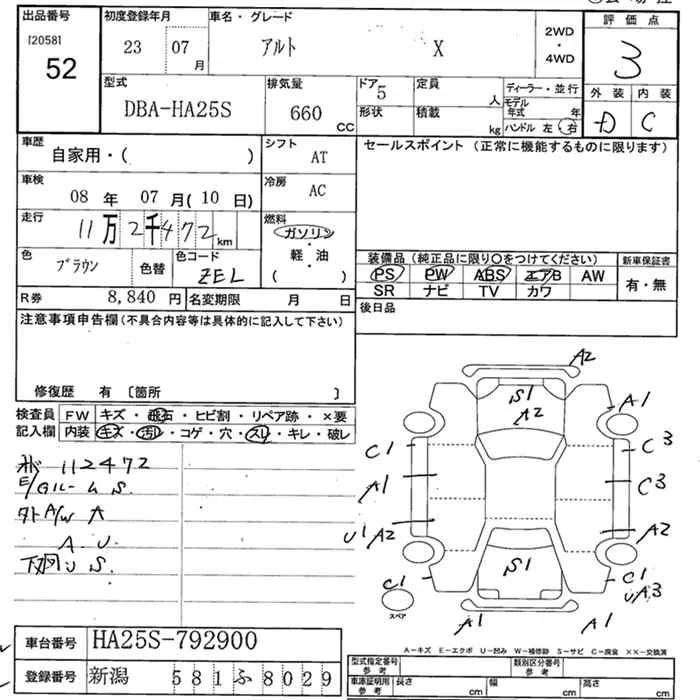 出品番号
[2058]
52
初度登録年月
23 07月
車名・グレード
アルト X
2WD・4WD
評価点
3
型式
DBA-HA25S
排気量
660 CC
ドア 5
形状
定員 人
積載 kg
ディーラー・並行
モデル年式 年
ハンドル 左 右
外装 内装
D C
車歴
自家用・( )
シフト AT
セールスポイント (正常に機能するものに限ります)
車検
08年 07月(10日)
冷房 AC
走行
11万2千472 km
燃料
ガソリン・軽油
( )
色 ブラウン 色替
色コード ZEL
装備品(純正品に限り○をつけてください)
新車保証書
PS PW ABS エアB AW
有・無
SR ナビ TV カワ
R券 8,840円 名変期限 月 日
後日品
注意事項申告欄(不具合内容等は具体的に記入して下さい)
修復歴 有 〔箇所 〕
検査員記入欄
FW キズ・飛石・ヒビ割・リペア跡・×要
内装 キズ・汚レ・コゲ・穴・スレ・キレ・破レ
112472
E/Gルーム S.
外 A/W A
A. U.
下廻 U S.
A2
S1
A2
A1
C1
C3
A1
C3
U1 A2
A2
S1
C1
C1
UA3
スペア
A1
A1
A-キズ E-エクボ U-凹み W-補修跡 S-サビ C-腐食 ××-交換済
車台番号 HA25S-792900
登録番号 新潟 581ふ8029
型式指定番号 参考
類別区分番号 参考
車庫証明用 参考
長さ cm
幅 cm
高さ cm